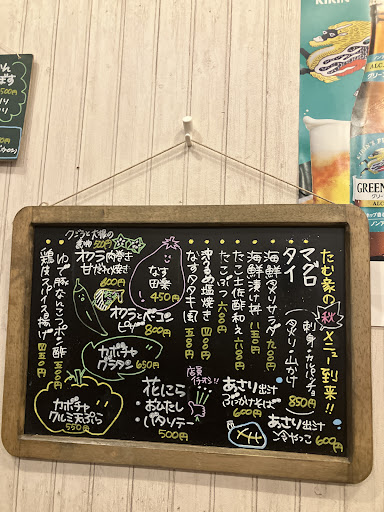 たむ家の秋メニュー到来!!
マグロ
タイ
刺身・カルパッチョ
炙り・山かけ
850円
海鮮炙りサラダ 980円
海鮮漬け丼 1150円
たこ土佐酢和え 680円
たこぶつ 680円
なすタタキ風 580円
なす
田楽
450円
オクラ肉巻き
甘がらみ焼き
600円
オクラとベーコン
ピザ
800円
ゆで豚なんこつポン酢 550円
鶏皮スパイス揚げ 450円
カボチャ
グラタン
650円
カボチャ
クルミ天ぷら
550円
花にら
・おひたし
・バタソテー
500円
店長
イチオシ!!
あさり出汁
ぶっかけそば
600円
あさり出汁
冷やっこ
600円
KIRIN
GREEN